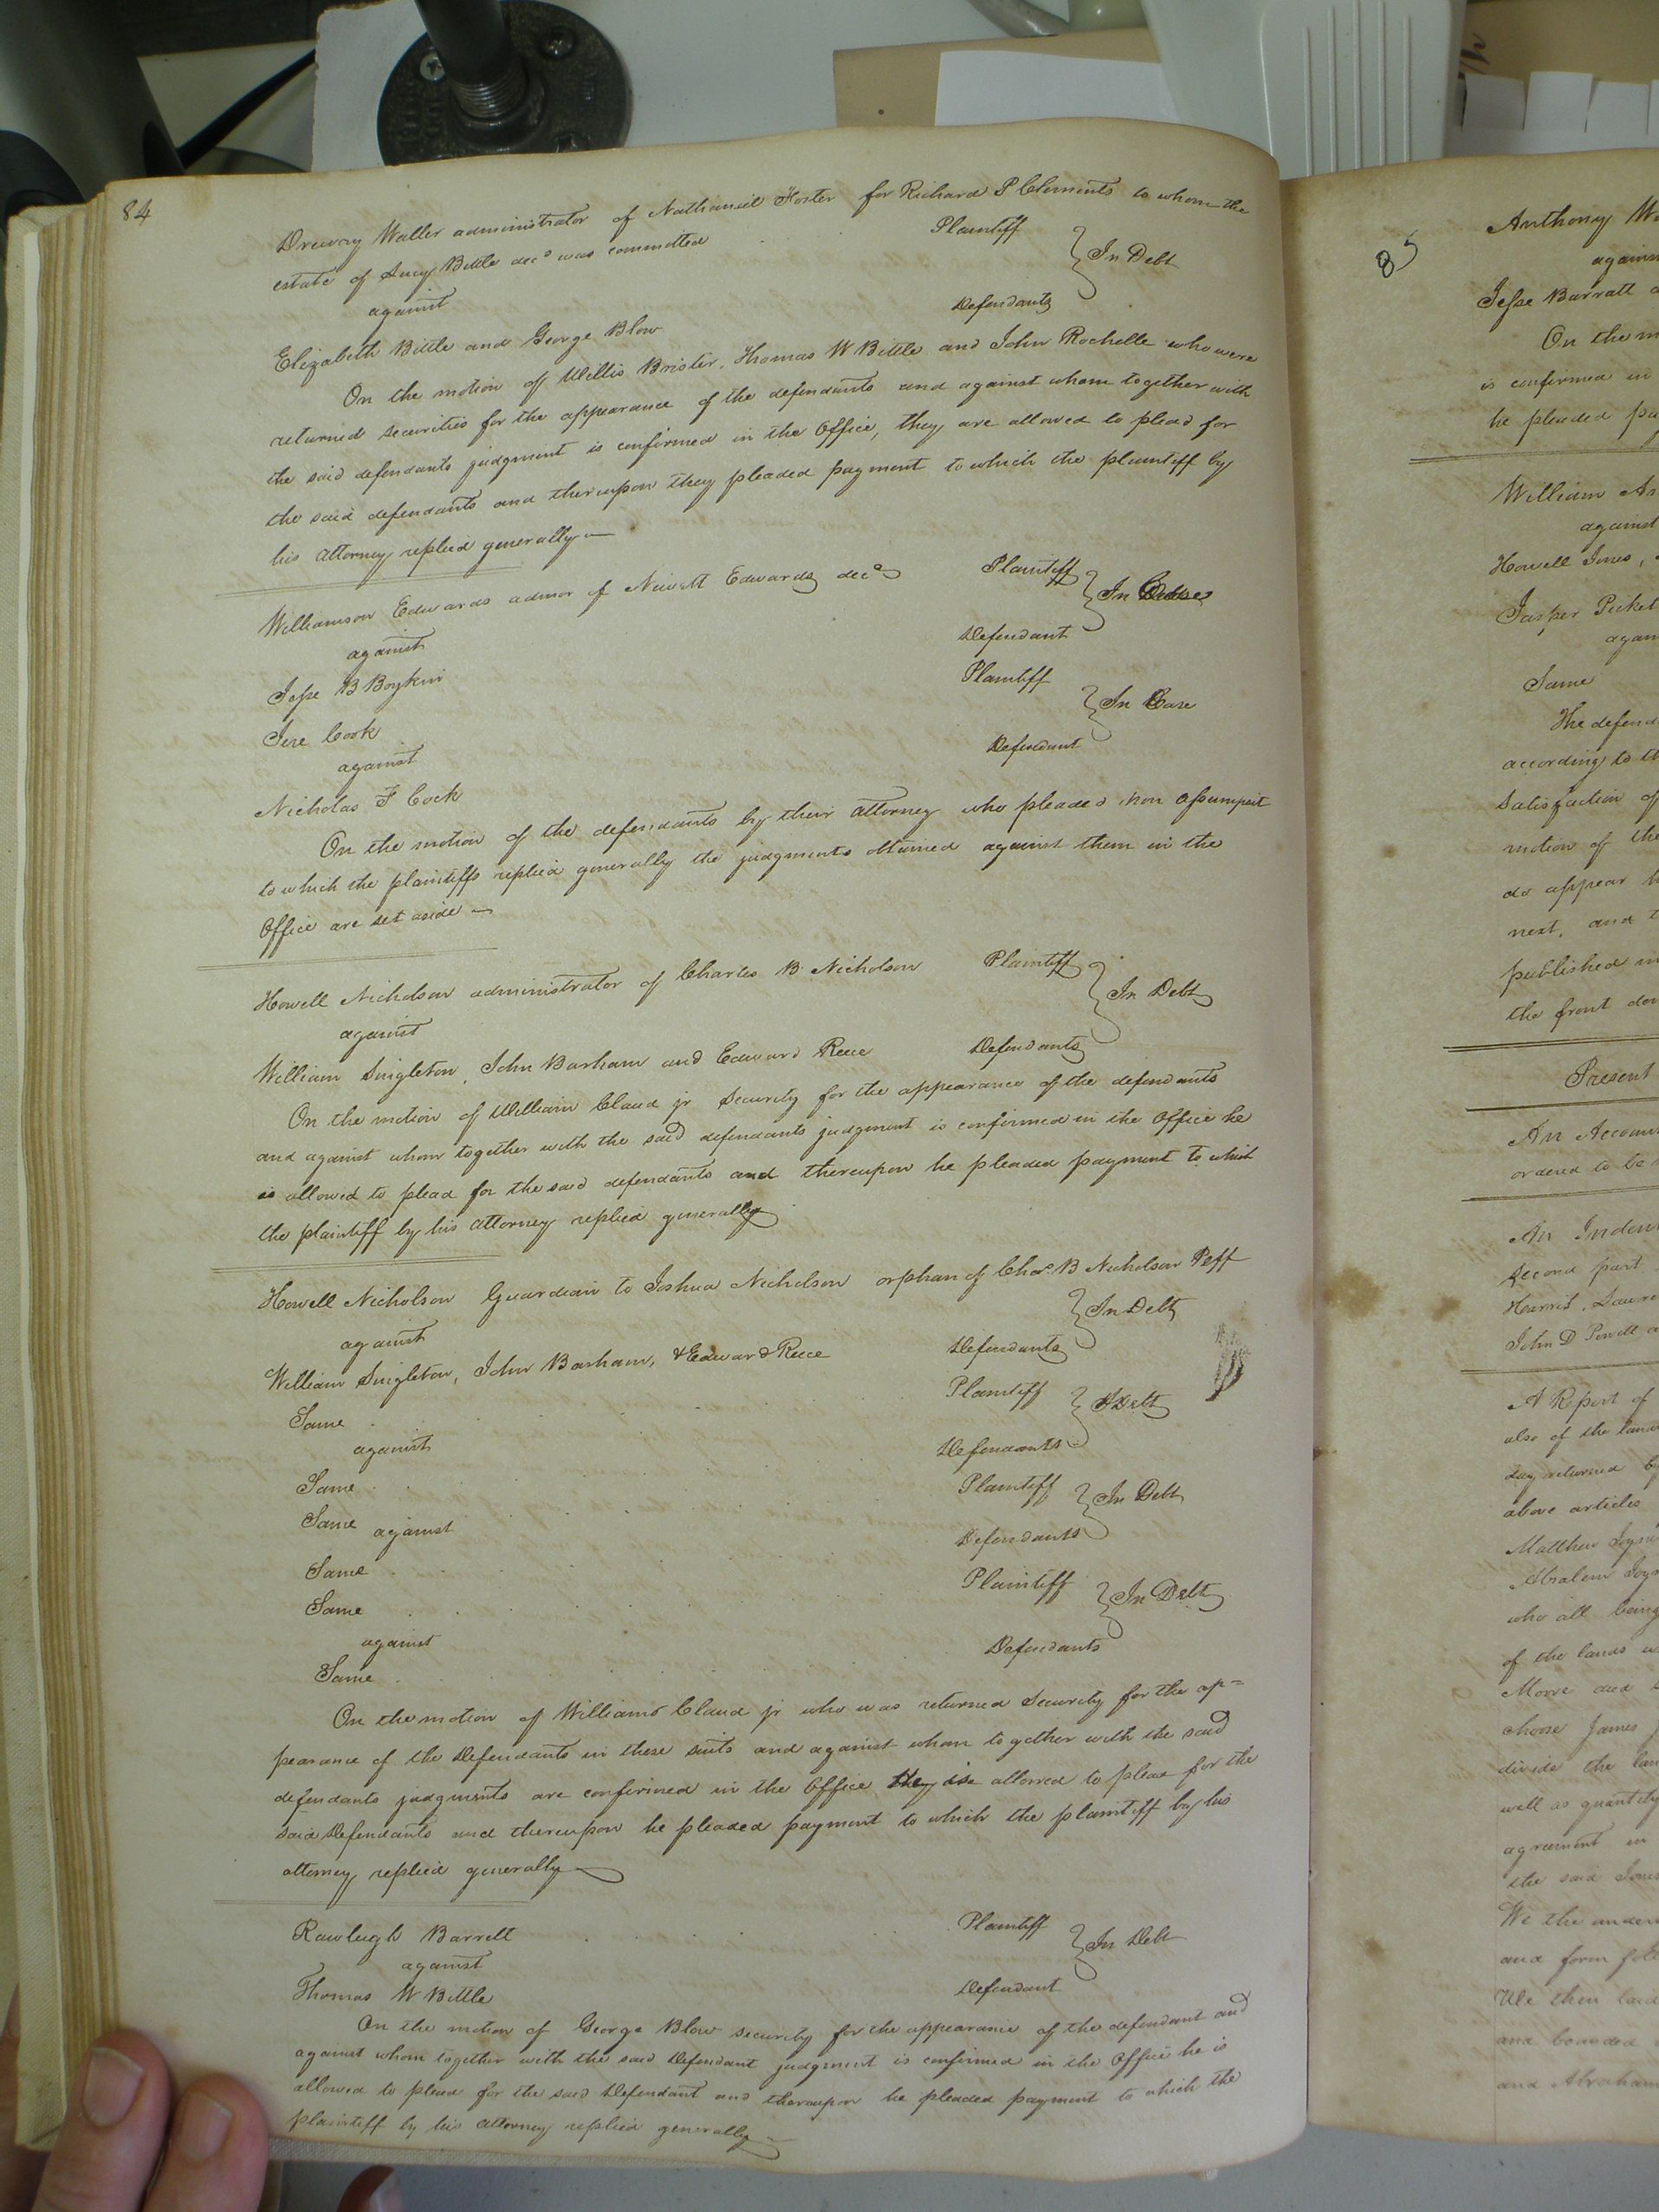 84
Drewry Waller administrator of Nathaniel Foster for Richard P Clements to whom the
estate of Lucy Bittle decd was committed Plaintiff
against } In Debt
Elizabeth Bittle and George Blow Defendants
On the motion of Willis Brister, Thomas W Bittle and John Rochelle who were
returned securities for the appearance of the defendants and against whom together with
the said defendants judgment is confirmed in the Office, they are allowed to plead for
the said defendants and thereupon they pleaded payment to which the plaintiff by
his attorney replied generally
Williamson Edwards admor of Newitt Edwards decd Plaintiff
against } In Case
Jesse B Boykin Defendant
Jere Cook Plaintiff
against } In Case
Nicholas F Cock Defendant
On the motion of the defendants by their attorney who pleaded Non Assumpsit
to which the plaintiffs replied generally the judgments obtained against them in the
Office are set aside
Howell Nicholson administrator of Charles B Nicholson Plaintiff
against } In Debt
William Singleton, John Barham and Edward Reece Defendants
On the motion of William Claud jr Security for the appearance of the defendants
and against whom together with the said defendants judgment is confirmed in the Office he
is allowed to plead for the said defendants and thereupon he pleaded payment to which
the plaintiff by his attorney replied generally
Howell Nicholson Guardian to Joshua Nicholson orphan of Chas. B Nicholson Plff
against } In Debt
William Singleton, John Barham, & Edward Reece Defendants
Same Plaintiff
against } In Debt
Same Defendants
Same Plaintiff
against } In Debt
Same Defendants
Same Plaintiff
against } In Debt
Same Defendants
On the motion of Williams Claud jr who was returned Security for the ap=
pearance of the Defendants in these suits and against whom together with the said
defendants judgments are confirmed in the Office he is allowed to plead for the
said Defendants and thereupon he pleaded payment to which the plaintiff by his
attorney replied generally
Rawleigh Barrett Plaintiff
against } In Debt
Thomas W Bittle Defendant
On the motion of George Blow security for the appearance of the defendant and
against whom together with the said Defendant judgment is confirmed in the Office he is
allowed to plead for the said Defendant and thereupon he pleaded payment to which the
plaintiff by his attorney replied generally
85
Anthony
against
Jesse Barratt
On the
is confirmed in
he pleaded
William
against
Howell Jones,
Jasper
Same
The
according to
Satisfaction of
motion of the
do appear
next, and
published
the front
Present
An
ordered to be
An
second part
John D Powell
A Report of
also of the
day returned
above articles
Matthew
who all being
of the lands
Moore and
choose James
divide the
well as quantity
agreement in
the said
We the
and form
We then
and bounded
and Abraham